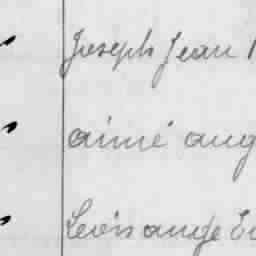 Joseph Jean
aimé aug
Leóis ange